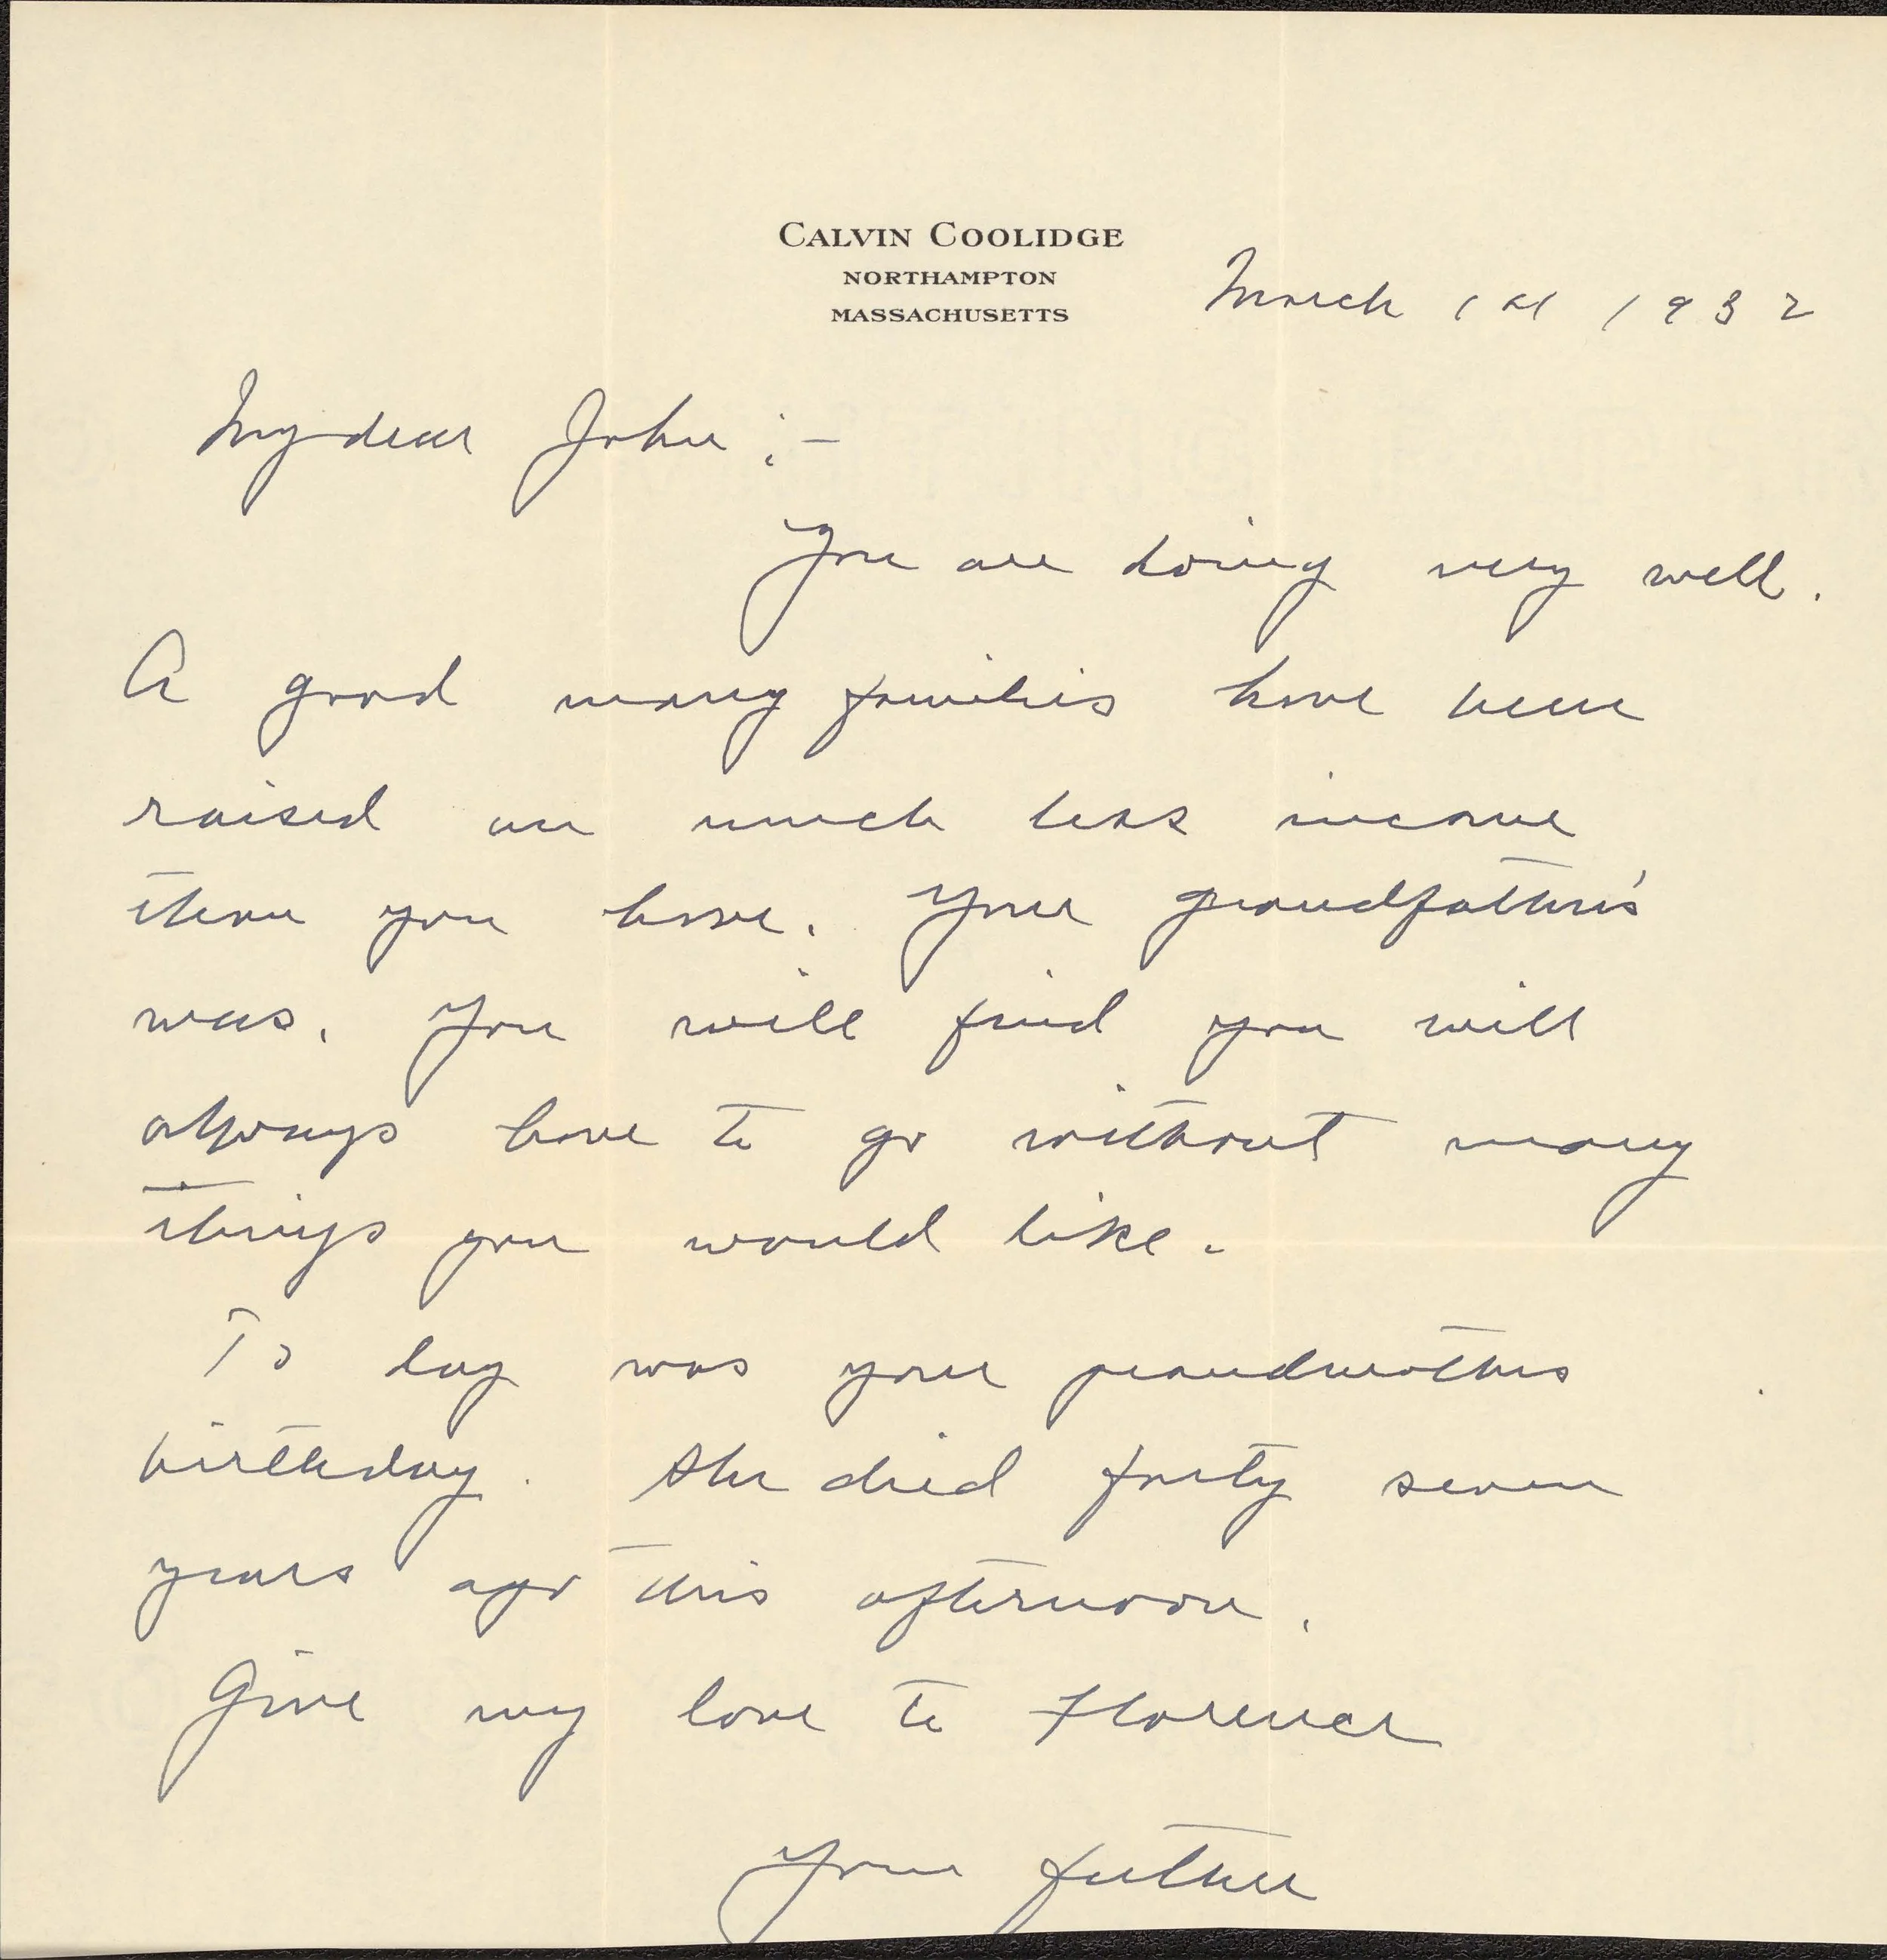 CALVIN COOLIDGE
NORTHAMPTON
MASSACHUSETTS
March 1st 1932
My dear John :-
You are doing very well.
A good many families have been
raised on much less income
than you have. Your grandfather's
was. You will find you will
always have to go without many
things you would like.
To day was your grandmothers
birthday. She died forty seven
years ago this afternoon.
Give my love to Florence
Your father